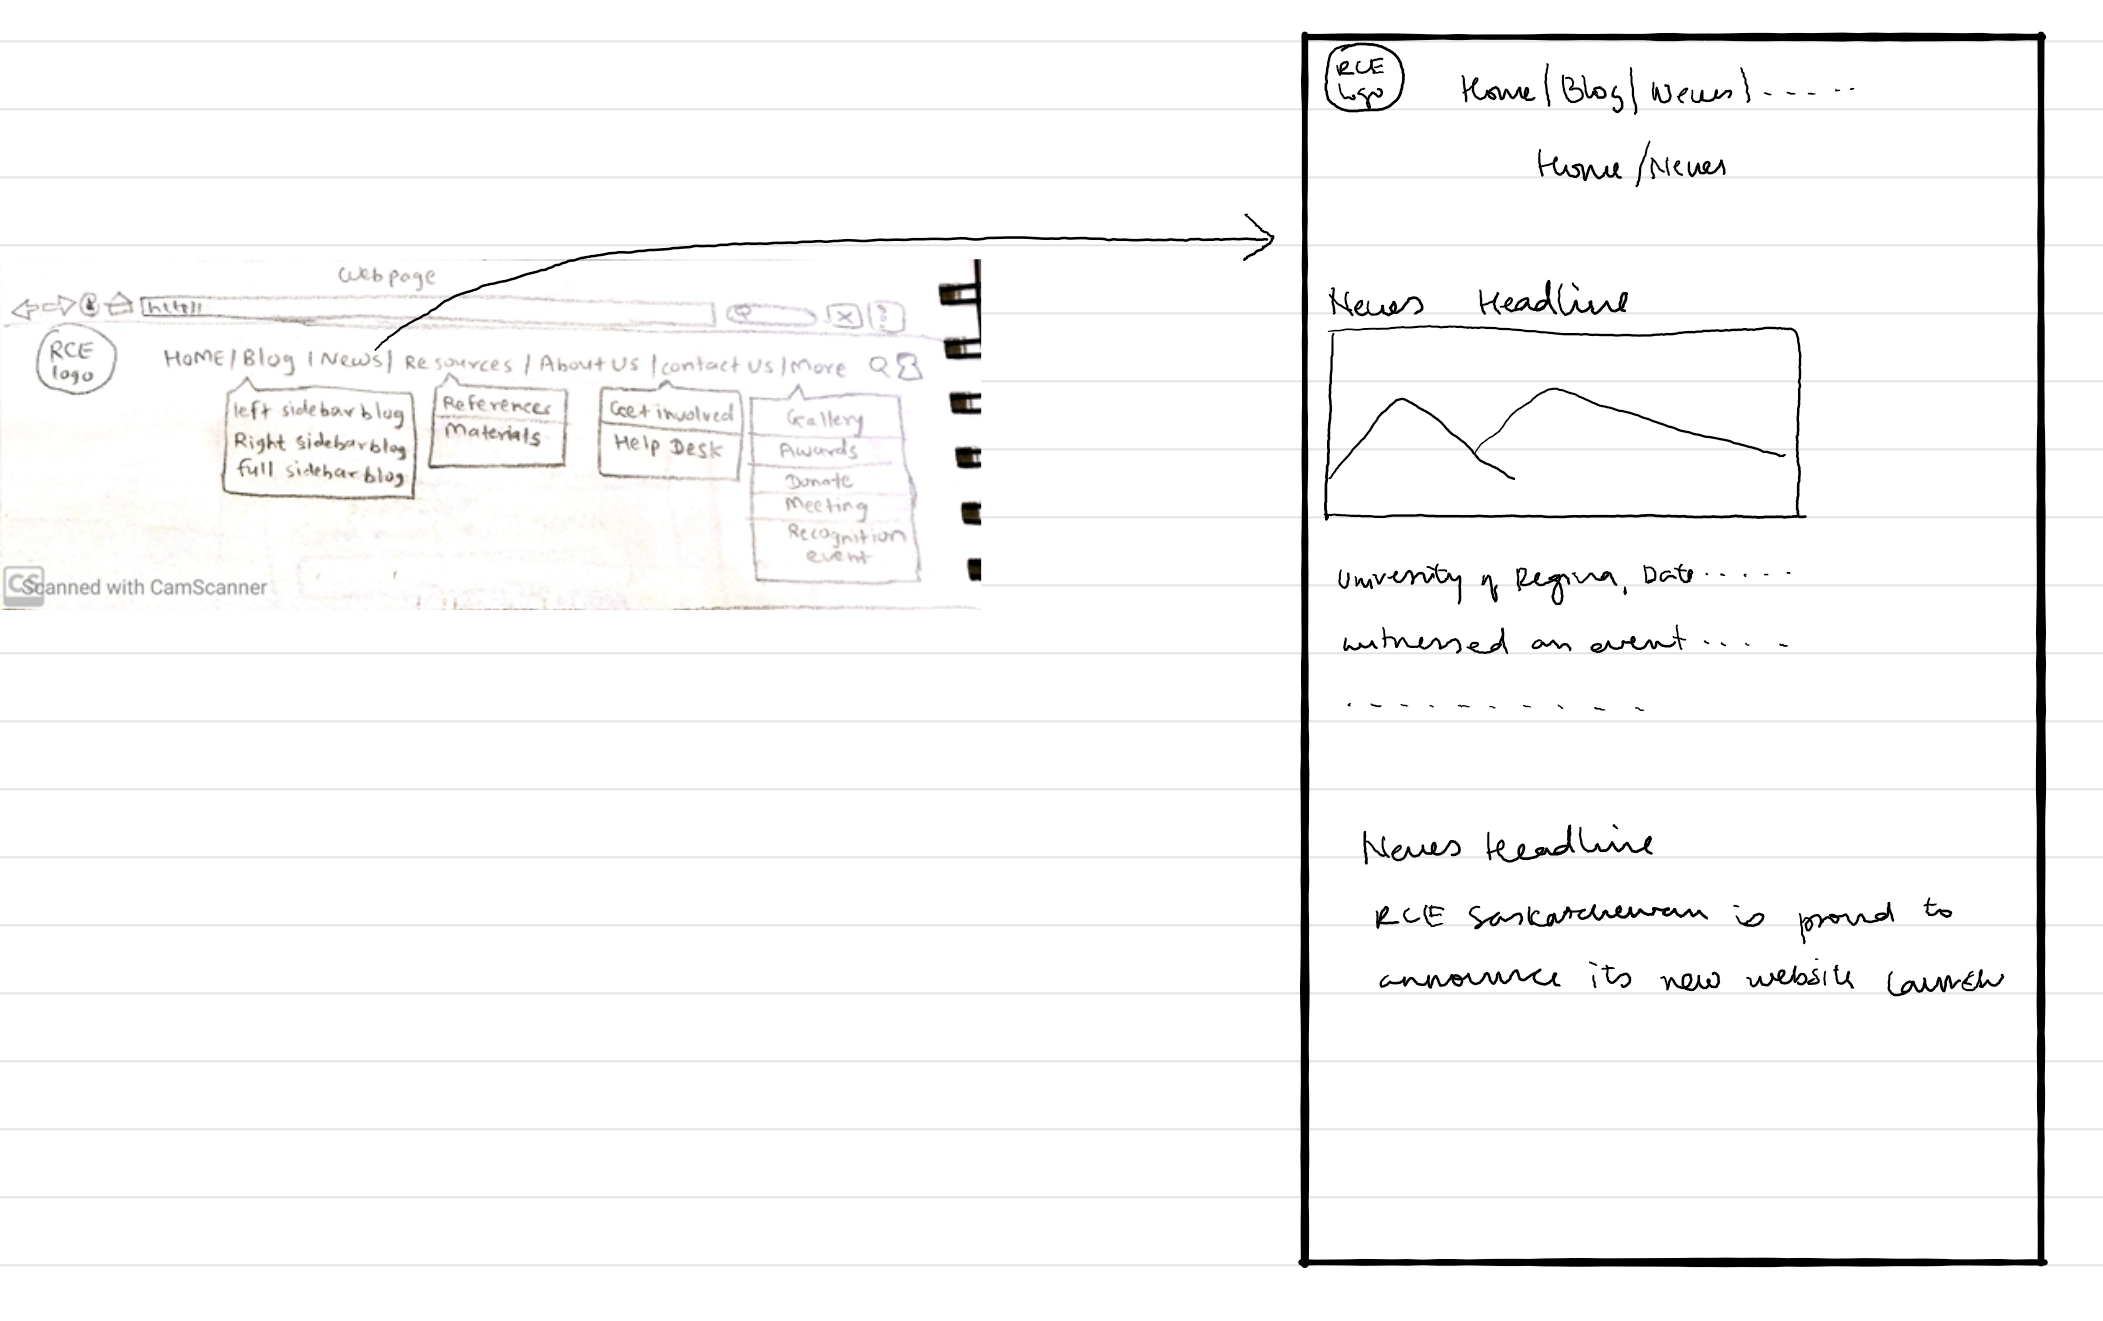 Webpage
http//
RCE
logo
HOME / Blog | News | Resources / About Us | contact us | More
left sidebar blog
Right sidebar blog
full sidebar blog
References
Materials
Get involved
Help Desk
Gallery
Awards
Donate
Meeting
Recognition
event
CS
Scanned with CamScanner
RCE
logo
Home | Blog | News | - - - - -
Home / News
News Headline
University of Regina, Date - - - - -
witnessed an event - - - - -
- - - - - - - - - -
News Headline
RCE Saskatchewan is proud to
announce its new website launch